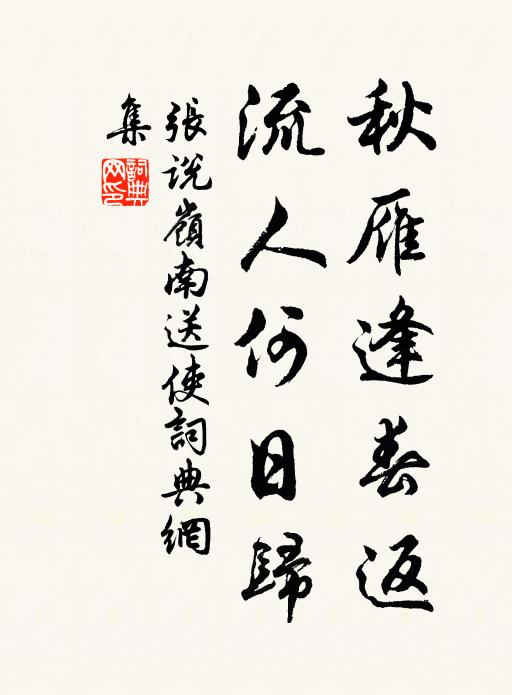 秋雁逢春返
流人何日歸
張説嶺南送使詞典網
集
詞典網印